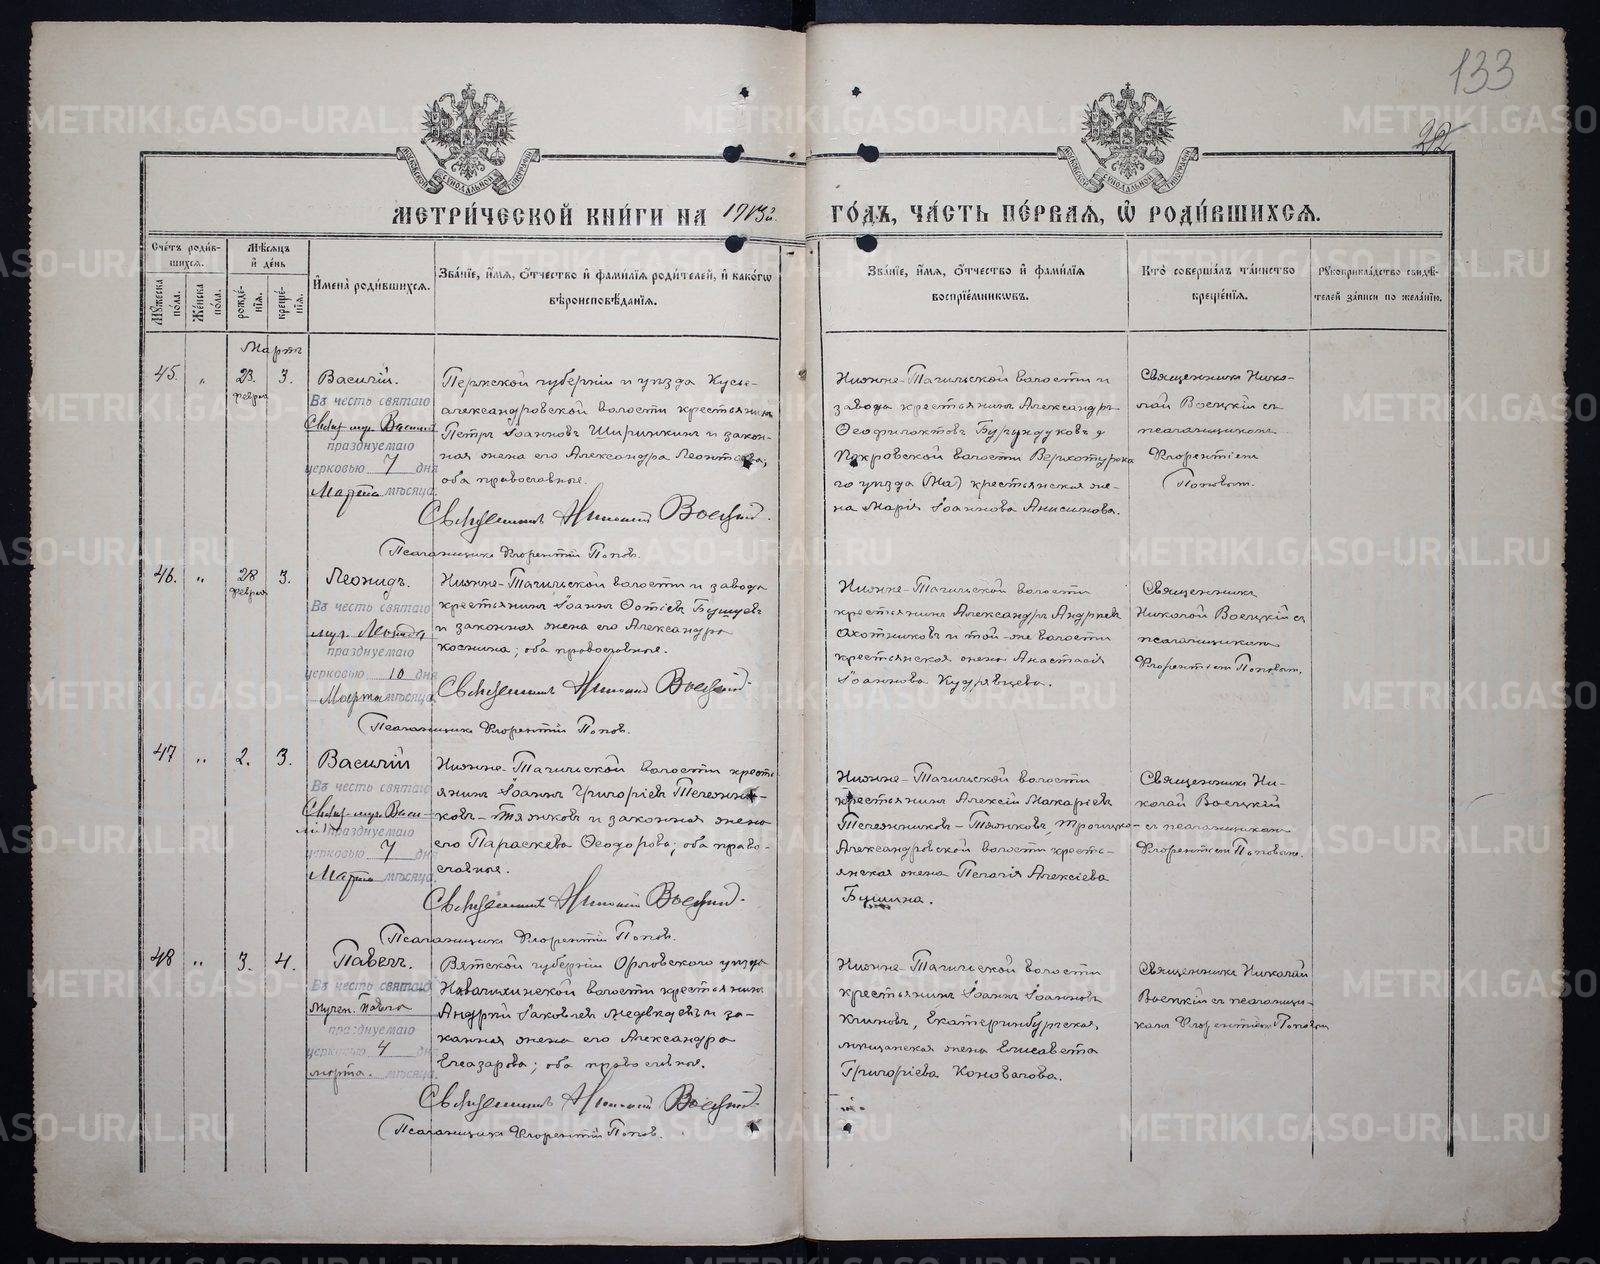 133
22
МЕТРИ́ЧЕСКОЙ КНИ́ГИ НА 1913 г.
ГО́ДЪ, ЧА́СТЬ ПЕ́РВАѦ, Ѡ҆ РОДИ́ВШИХСѦ.
Сче́тъ роди́в-
шихсѧ.
Мꙋ́жеска по́ла.
Же́нска по́ла.
Мѣ́сѧцъ и҆ де́нь
рожде́-
нїѧ.
креще́-
нїѧ.
И҆мена̀ роди́вшихсѧ.
Зва́нїе, и҆́мѧ, ѻ҆́тчество и҆ фами́лїѧ роди́телей, и҆ како́гѡ
вѣроисповѣ́данїѧ.
Зва́нїе, и҆́мѧ, ѻ҆́тчество и҆ фами́лїѧ
воспрїе́мникѡвъ.
Кто̀ соверша́лъ та́инство
креще́нїѧ.
Рꙋкоприкла́дство свидѣ́-
телей за́писи по жела́нїю.
Мартъ
45. " 23. февраля 3.
Василій.
Въ честь святаго
Свящ-муч. Василій
празднуемаго
церковью 7 дня
Марта мѣсяца.
Пермской губерніи и уѣзда Кусье-
александровской волости крестьянинъ
Петръ Іоанновъ Ширинкинъ и закон-
ная жена его Александра Леонтьева,
оба православные.
Священникъ Николай Воецкій.
Псаломщикъ Флорентій Поповъ.
Нижне-Тагильской волости и
завода крестьянинъ Александръ
Ѳеофилактовъ Бурундуковъ и
Покровской волости Верхотурска-
го уѣзда (На) крестьянская же-
на Марія Іоаннова Анисимова.
Священникъ Нико-
лай Воецкій съ
псаломщикомъ
Флорентіемъ
Поповымъ.
46. " 28 февраля 3.
Леонидъ.
Въ честь святаго
муч. Леонида
празднуемаго
церковью 10 дня
Марта мѣсяца.
Нижне-Тагильской волости и завода
крестьянинъ Іоаннъ Ѳотіевъ Бушуевъ
и законная жена его Александра
Космина; оба православные.
Священникъ Николай Воецкій.
Псаломщикъ Флорентій Поповъ.
Нижне-Тагильской волости
крестьянинъ Александръ Андреевъ
Охотниковъ и той-же волости
крестьянская жена Анастасія
Іоаннова Кудрявцева.
Священникъ
Николай Воецкій съ
псаломщикомъ
Флорентіемъ Поповымъ.
47 " 2. 3.
Василій
Въ честь святаго
Свящ-муч. Васи-
лій празднуемаго
церковью 7 дня
Марта мѣсяца.
Нижне-Тагильской волости кресть-
янинъ Іоаннъ Григоріевъ Тележни-
ковъ-Тяжковъ и законная жена
его Параскева Ѳеодорова; оба право-
славные.
Священникъ Николай Воецкій.
Псаломщикъ Флорентій Поповъ.
Нижне-Тагильской волости
крестьянинъ Алексій Макаріевъ
Тележниковъ-Тяжковъ, Троицко-
Александровской волости кресть-
янская жена Пелагія Алексіева
Бушина.
Священникъ Ни-
колай Воецкій
съ псаломщикомъ
Флорентіемъ Поповымъ.
48 " 3. 4.
Павелъ.
Въ честь святаго
Мучен. Павла
празднуемаго
церковью 4 дня
марта. мѣсяца.
Вятской губерніи Орловскаго уѣзда
волости крестьянинъ
Андрей Іаковлевъ Медвѣдевъ и за-
конная жена его Александра
Елеазарова; оба православные.
Священникъ Николай Воецкій.
Псаломщикъ Флорентій Поповъ.
Нижне-Тагильской волости
крестьянинъ Іоаннъ Іоанновъ
Климовъ, Екатеринбургская,
мѣщанская жена Елисавета
Григоріева Коновалова.
Священникъ Николай
Воецкій съ псаломщи-
комъ Флорентіемъ Поповымъ
METRIKI.GASO-URAL.RU